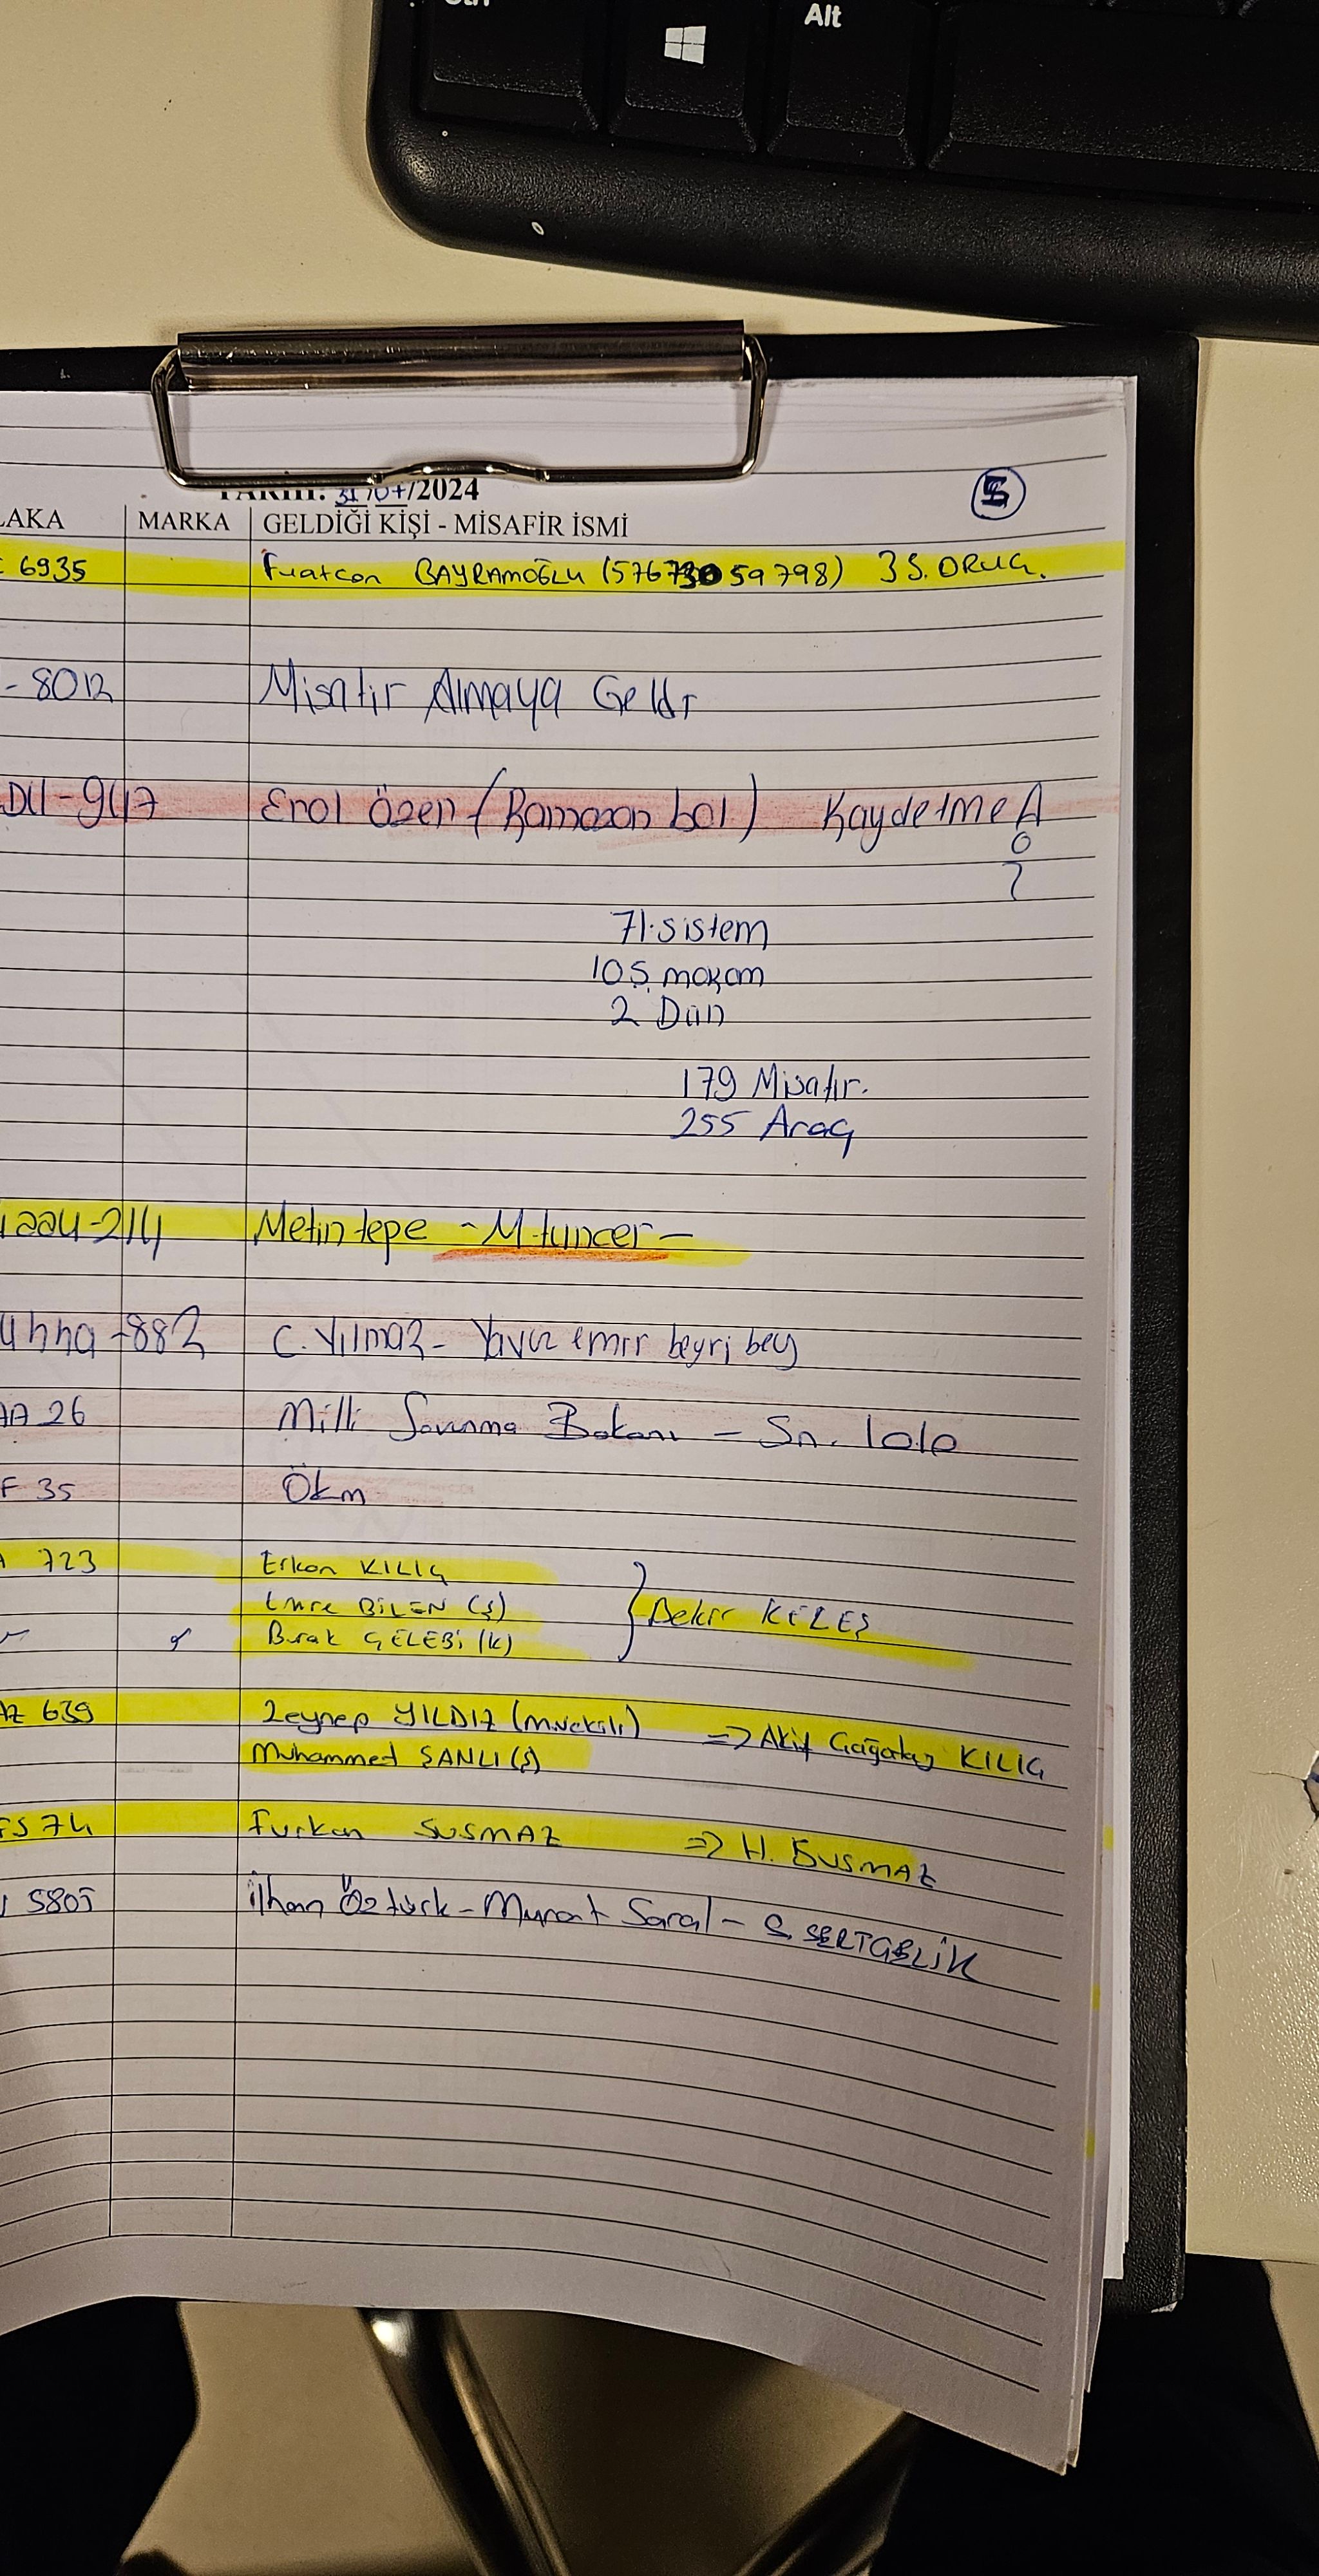 Alt
TARİHİ: 31/07/2024
5
LAKA MARKA GELDİĞİ KİŞİ - MİSAFİR İSMİ
6935 Fuatcan BAYRAMOĞLU (57673059798) 3 S. ORUÇ.
- 8012 Misafir Almaya Geldi
DU-947 Erol Özen (Ramazan bal) Kaydetme A
71.sistem
105 makam
2 Dün
179 Misafir.
255 Araç
-214 Metin tepe - M.tuncer -
-882 C. Yılmaz - Yavuz emir beyri bey
AA 26 Milli Savunma Bakanı - Sn.
F 35 Ökm
723 Erkan KILIÇ
Emre BİLEN (Ş)
Burak ÇELEBİ (K)
} Bekir KELEŞ
AZ 639 Zeynep YILDIZ (M.vekili) => Akif Çağatay KILIÇ
Muhammed ŞANLI (Ş)
FS 74 Furkan SUSMAZ => H. SUSMAZ
5805 İlhan Öztürk - Murat Saral - S. SERTÇELİK